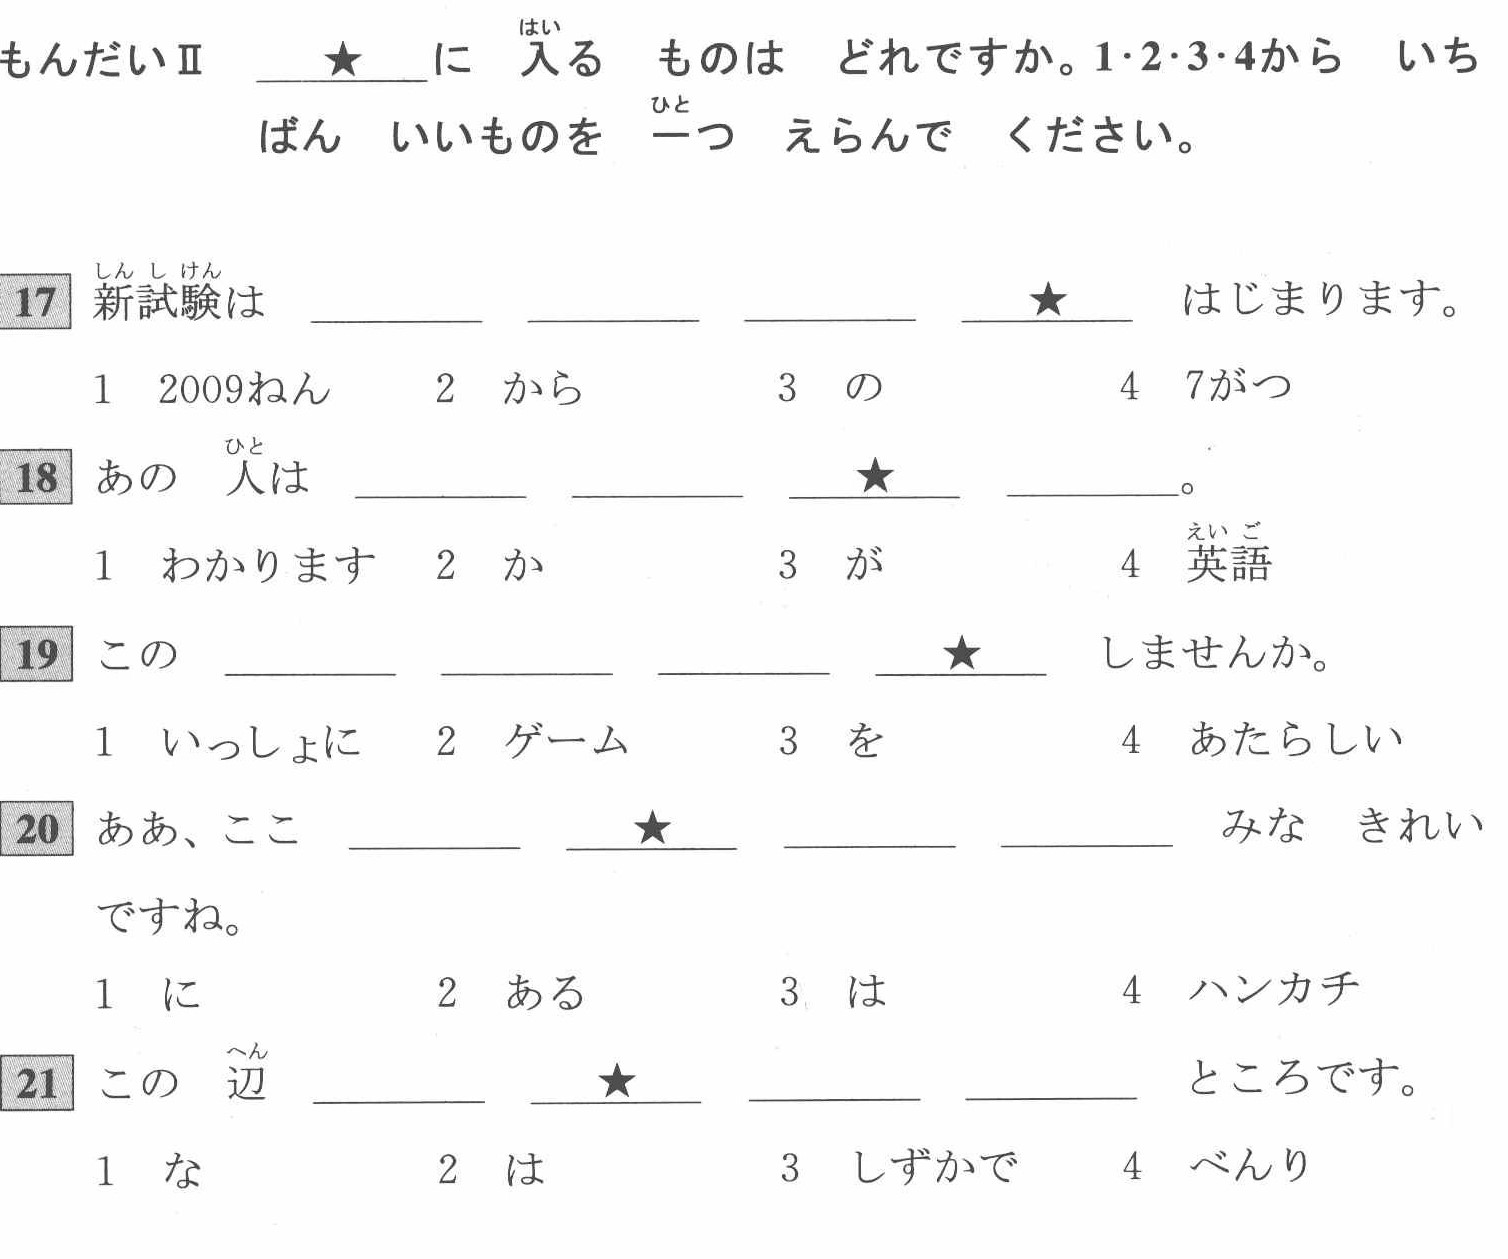 もんだいⅡ ＿★＿に 入る ものは どれですか。1・2・3・4から いち
ばん いいものを 一つ えらんで ください。
17 新試験は ＿＿＿ ＿＿＿ ＿＿＿ ＿★＿ はじまります。
1 2009ねん 2 から 3 の 4 7がつ
18 あの 人は ＿＿＿ ＿＿＿ ＿★＿ ＿＿＿。
1 わかります 2 か 3 が 4 英語
19 この ＿＿＿ ＿＿＿ ＿＿＿ ＿★＿ しませんか。
1 いっしょに 2 ゲーム 3 を 4 あたらしい
20 ああ、ここ ＿＿＿ ＿★＿ ＿＿＿ ＿＿＿ みな きれい
ですね。
1 に 2 ある 3 は 4 ハンカチ
21 この 辺 ＿＿＿ ＿★＿ ＿＿＿ ＿＿＿ ところです。
1 な 2 は 3 しずかで 4 べんり